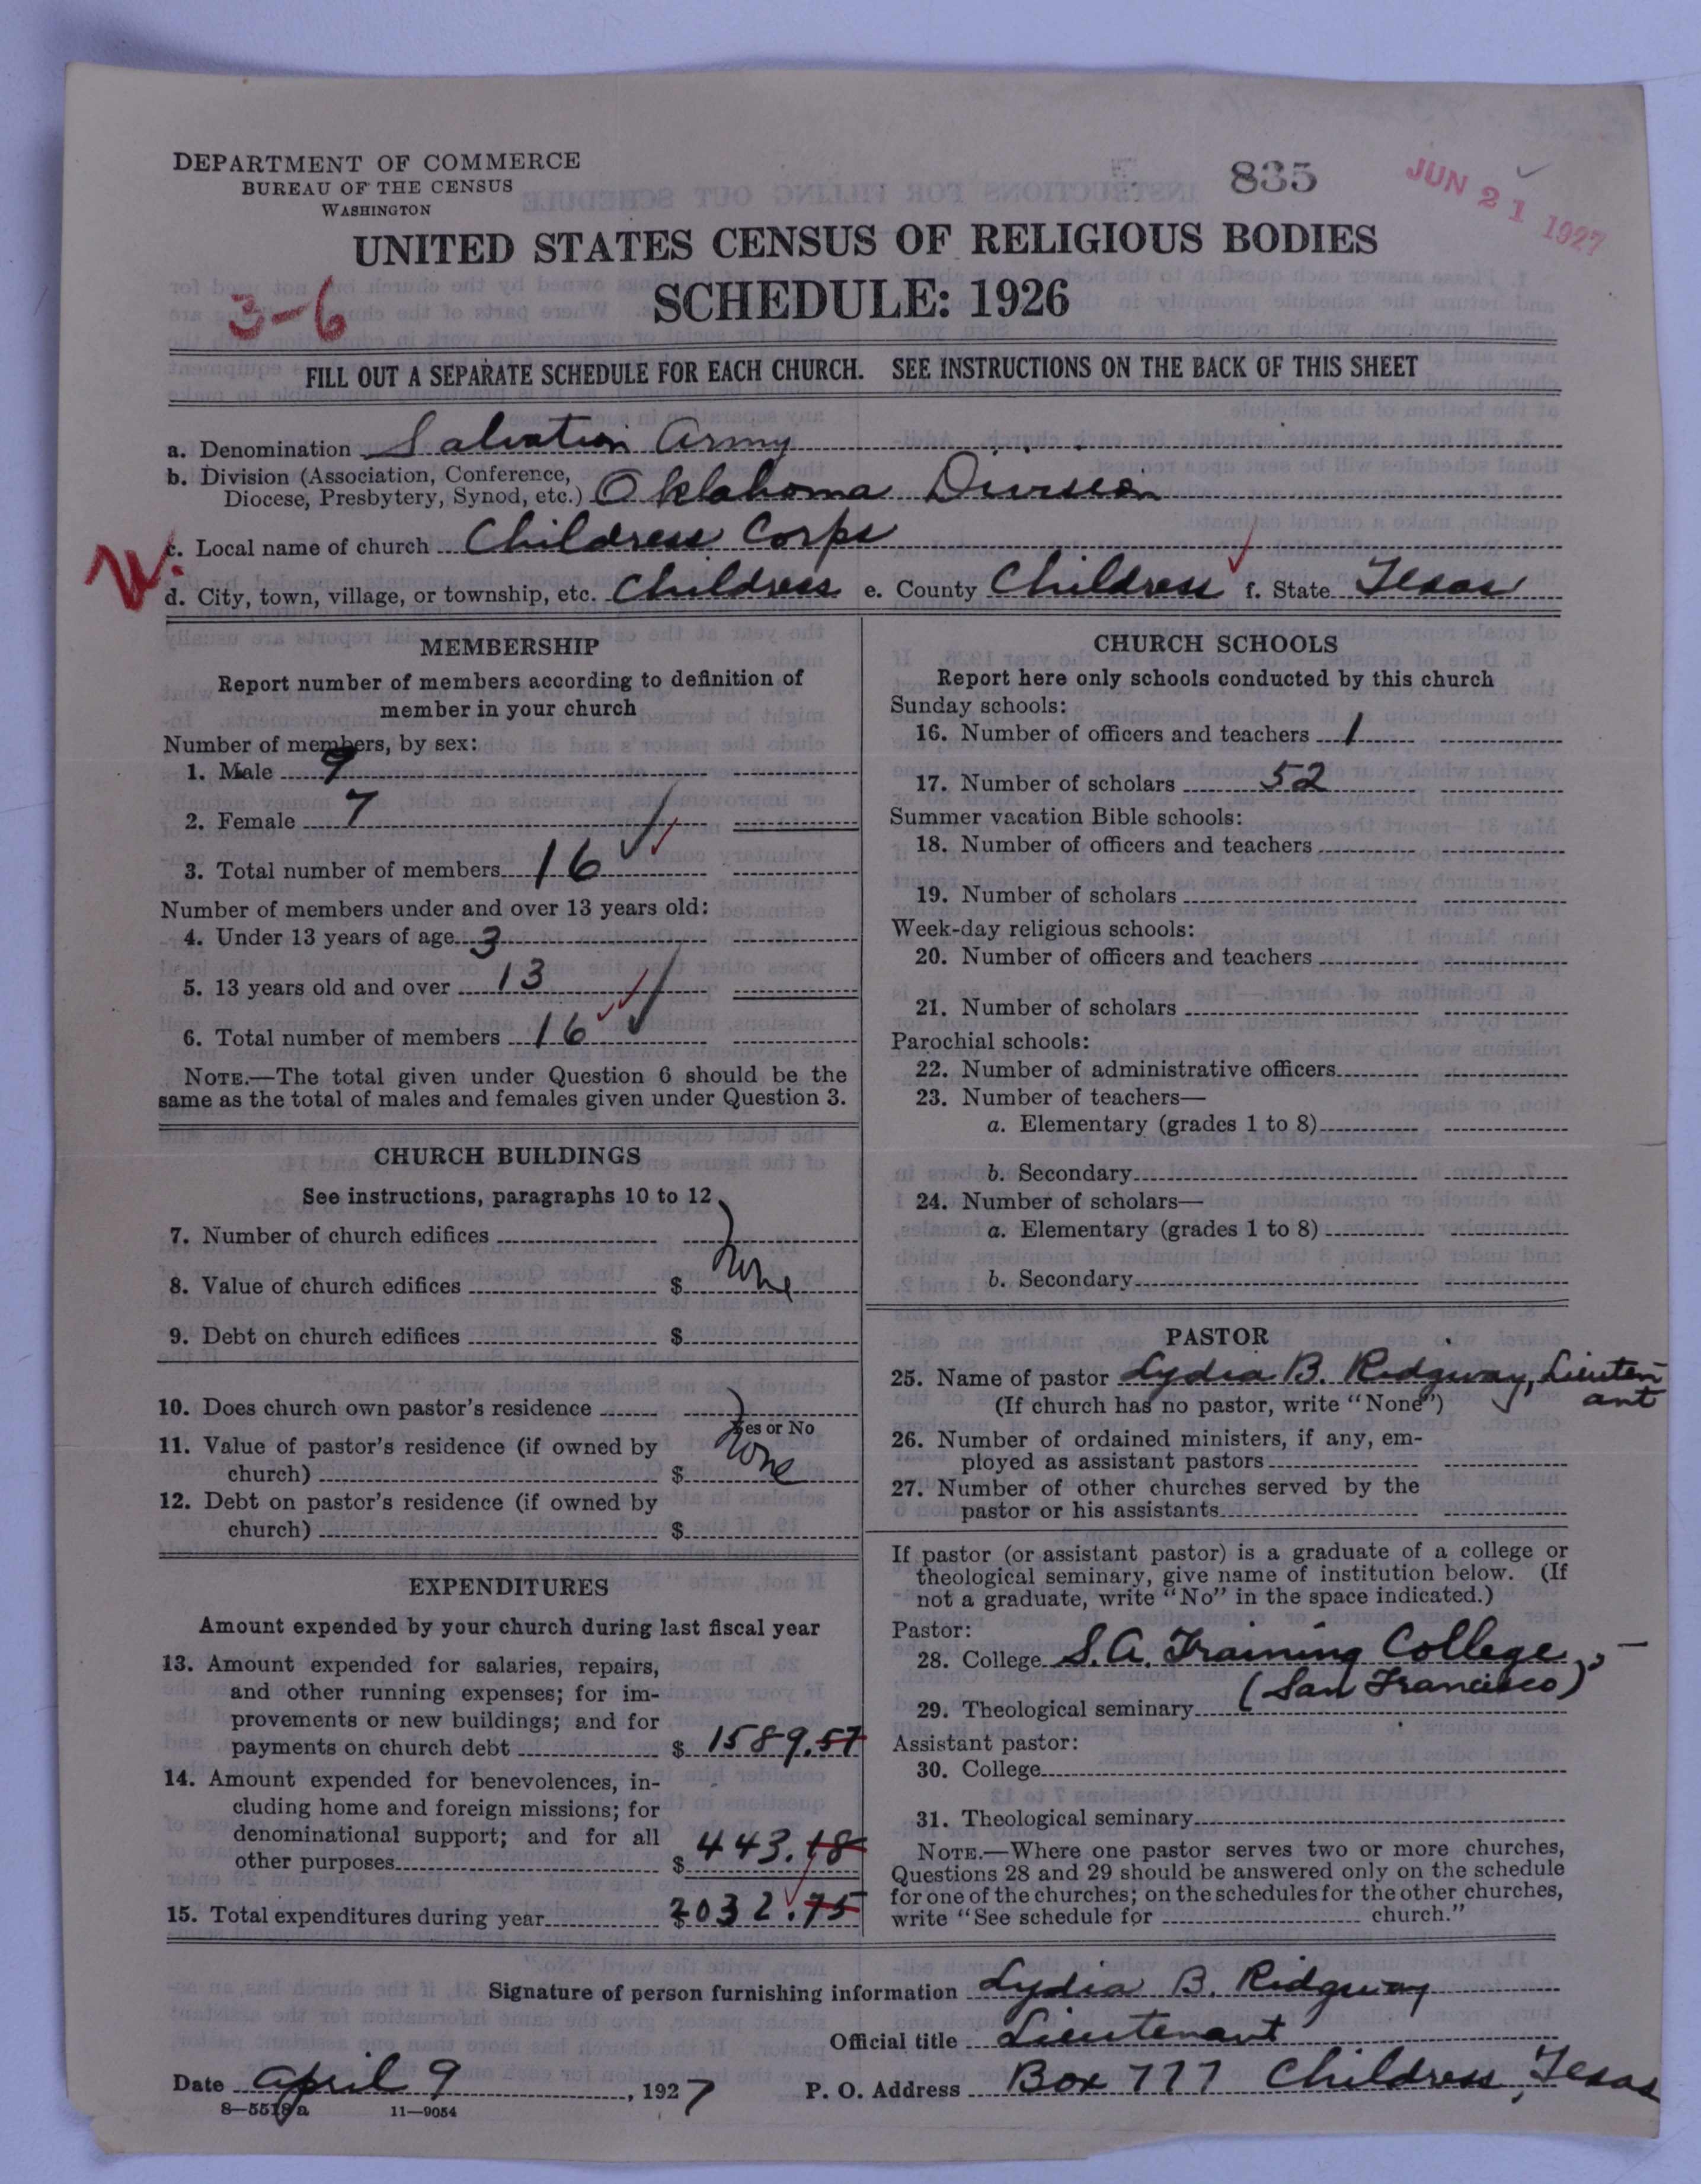 DEPARTMENT OF COMMERCE
BUREAU OF THE CENSUS
WASHINGTON
835
JUN 21 1927
UNITED STATES CENSUS OF RELIGIOUS BODIES
SCHEDULE: 1926
3-6
FILL OUT A SEPARATE SCHEDULE FOR EACH CHURCH. SEE INSTRUCTIONS ON THE BACK OF THIS SHEET
a. Denomination Salvation Army
b. Division (Association, Conference,
Diocese, Presbytery, Synod, etc.) Oklahoma Division
c. Local name of church Childress Corps
W.
d. City, town, village, or township, etc. Childress e. County Childress f. State Texas
MEMBERSHIP
Report number of members according to definition of
member in your church
Number of members, by sex:
1. Male 9
2. Female 7
3. Total number of members 16
Number of members under and over 13 years old:
4. Under 13 years of age 3
5. 13 years old and over 13
6. Total number of members 16
NOTE.—The total given under Question 6 should be the
same as the total of males and females given under Question 3.
CHURCH BUILDINGS
See instructions, paragraphs 10 to 12
7. Number of church edifices
8. Value of church edifices $ none
9. Debt on church edifices $
10. Does church own pastor's residence
Yes or No
11. Value of pastor's residence (if owned by
church) $ none
12. Debt on pastor's residence (if owned by
church) $
EXPENDITURES
Amount expended by your church during last fiscal year
13. Amount expended for salaries, repairs,
and other running expenses; for im-
provements or new buildings; and for
payments on church debt $ 1589.57
14. Amount expended for benevolences, in-
cluding home and foreign missions; for
denominational support; and for all
other purposes $ 443.18
15. Total expenditures during year $ 2032.75
CHURCH SCHOOLS
Report here only schools conducted by this church
Sunday schools:
16. Number of officers and teachers 1
17. Number of scholars 52
Summer vacation Bible schools:
18. Number of officers and teachers
19. Number of scholars
Week-day religious schools:
20. Number of officers and teachers
21. Number of scholars
Parochial schools:
22. Number of administrative officers
23. Number of teachers—
a. Elementary (grades 1 to 8)
b. Secondary
24. Number of scholars—
a. Elementary (grades 1 to 8)
b. Secondary
PASTOR
25. Name of pastor Lydia B. Ridgway, Lieuten
ant
(If church has no pastor, write "None")
26. Number of ordained ministers, if any, em-
ployed as assistant pastors
27. Number of other churches served by the
pastor or his assistants
If pastor (or assistant pastor) is a graduate of a college or
theological seminary, give name of institution below. (If
not a graduate, write "No" in the space indicated.)
Pastor:
28. College S. A. Training College,-
(San Francisco)
29. Theological seminary
Assistant pastor:
30. College
31. Theological seminary
NOTE.—Where one pastor serves two or more churches,
Questions 28 and 29 should be answered only on the schedule
for one of the churches; on the schedules for the other churches,
write "See schedule for church."
Signature of person furnishing information Lydia B. Ridgway
Official title Lieutenant
Date April 9, 1927 P. O. Address Box 777 Childress, Texas
8—5518a 11—9054